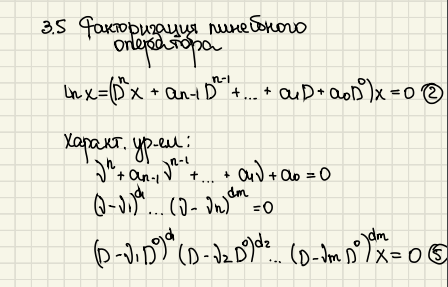 3.5 Факторизация линейного
оператора
Lnx = (Dⁿx + aₙ₋₁Dⁿ⁻¹ + ... + a₁D + a₀D⁰)x = 0 ②
Характ. ур-ем:
λⁿ + aₙ₋₁λⁿ⁻¹ + ... + a₁λ + a₀ = 0
(λ-λ₁)^d₁ ... (λ-λₙ)^dm = 0
(D-λ₁D⁰)^d₁ (D-λ₂D⁰)^d₂ ... (D-λmD⁰)^dm x = 0 ⑤